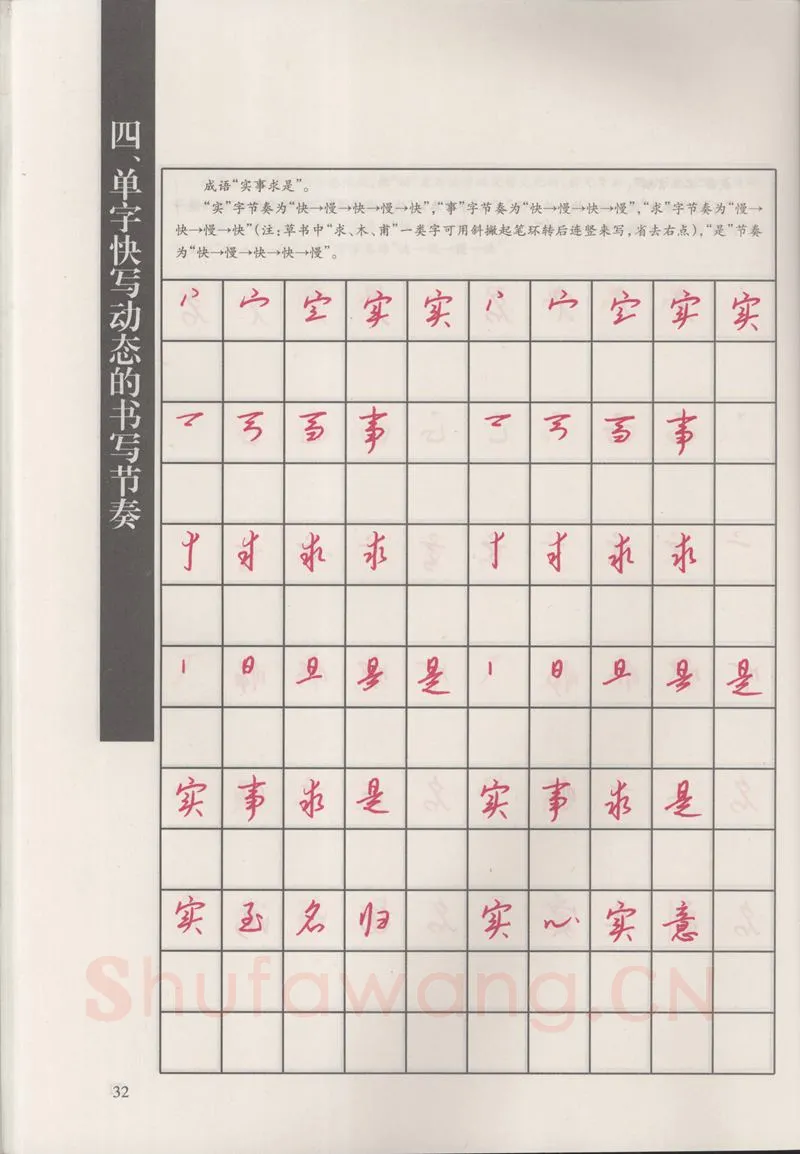 四、单字快写动态的书写节奏
成语“实事求是”。
“实”字节奏为“快→慢→快→慢→快”，“事”字节奏为“快→慢→快→慢”，“求”字节奏为“慢→
快→慢→快”（注：草书中“求、木、甫”一类字可用斜撇起笔环转后连竖来写，省去右点），“是”节奏
为“快→慢→快→快→慢”。
实 实 实 实
事 事
求 求 求 求
日 旦 是 日 旦 是
实 事 求 是 实 事 求 是
实 至 名 归 实 心 实 意
Shufawang.CN
32